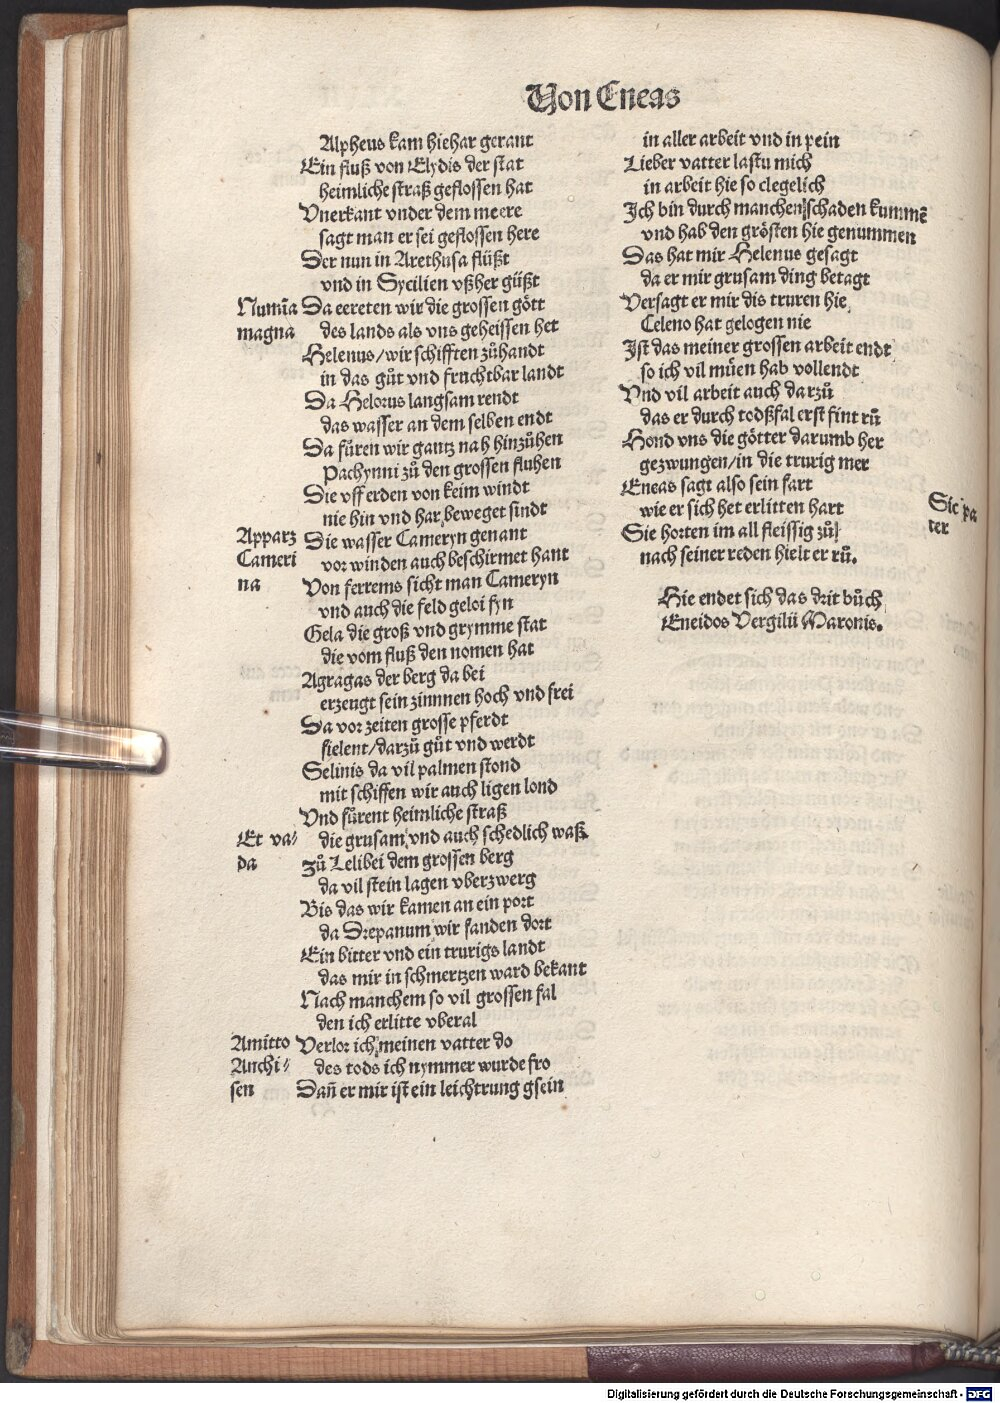 Von Eneas
Alpheus kam hiehar gerant
Ein fluß von Elydis der stat
heimliche straß geflossen hat
Vnerkant vnder dem meere
sagt man er sei geflossen here
Der nun in Arethusa flüßt
vnd in Sycilien vßher güßt
Numīa
magna
Da eereten wir die grossen gött
des lands als vns geheissen het
Helenus/wir schifften zůhandt
in das gůt vnd fruchtbar landt
Da Helorus langsam rendt
das wasser an dem selben endt
Da fůren wir gantz nah hinzůhen
Pachynni zů den grossen fluhen
Die vff erden von keim windt
nie hin vnd har beweget sindt
Apparz
Cameri
na
Die wasser Cameryn genant
vor winden auch beschirmet hant
Von ferrems sicht man Cameryn
vnd auch die feld geloi syn
Gela die groß vnd grymme stat
die vom fluß den nomen hat
Agragas der berg da bei
erzeugt sein zinnnen hoch vnd frei
Da vor zeiten grosse pferdt
fielent/darzů gůt vnd werdt
Selinis da vil palmen stond
mit schiffen wir auch ligen lond
Vnd fůrent heimliche straß
Et va⸗
da
die grusam vnd auch schedlich waß
zů Lelibei dem grossen berg
da vil stein lagen vberzwerg
Bis das wir kamen an ein port
da Drepanum wir fanden dort
Ein bitter vnd ein trurigs landt
das mir in schmertzen ward bekant
Nach manchem so vil grossen fal
den ich erlitte vberal
Amitto
Anchi⸗
sen
Verlor ich meinen vatter do
des tods ich nymmer wurde fro
Dañ er mir ist ein leichtrung gsein
in aller arbeit vnd in pein
Lieber vatter lastu mich
in arbeit hie so clegelich
Ich bin durch manchen schaden kummē
vnd hab den grösten hie genummen
Das hat mir Helenus gesagt
da er mir grusam ding betagt
Versagt er mir dis truren hie
Celeno hat gelogen nie
Ist das meiner grossen arbeit endt
so ich vil müen hab vollendt
Vnd vil arbeit auch darzů
das er durch todßfal erst fint rů
Hond vns die götter darumb her
gezwungen/in die trurig mer
Eneas sagt also sein fart
wie er sich het erlitten hart
Sic pa
ter
Sie horten im all fleissig zů
nach seiner reden hielt er rů.
Hie endet sich das drit bůch
Eneidos Vergilii Maronis.
Digitalisierung gefördert durch die Deutsche Forschungsgemeinschaft - DFG